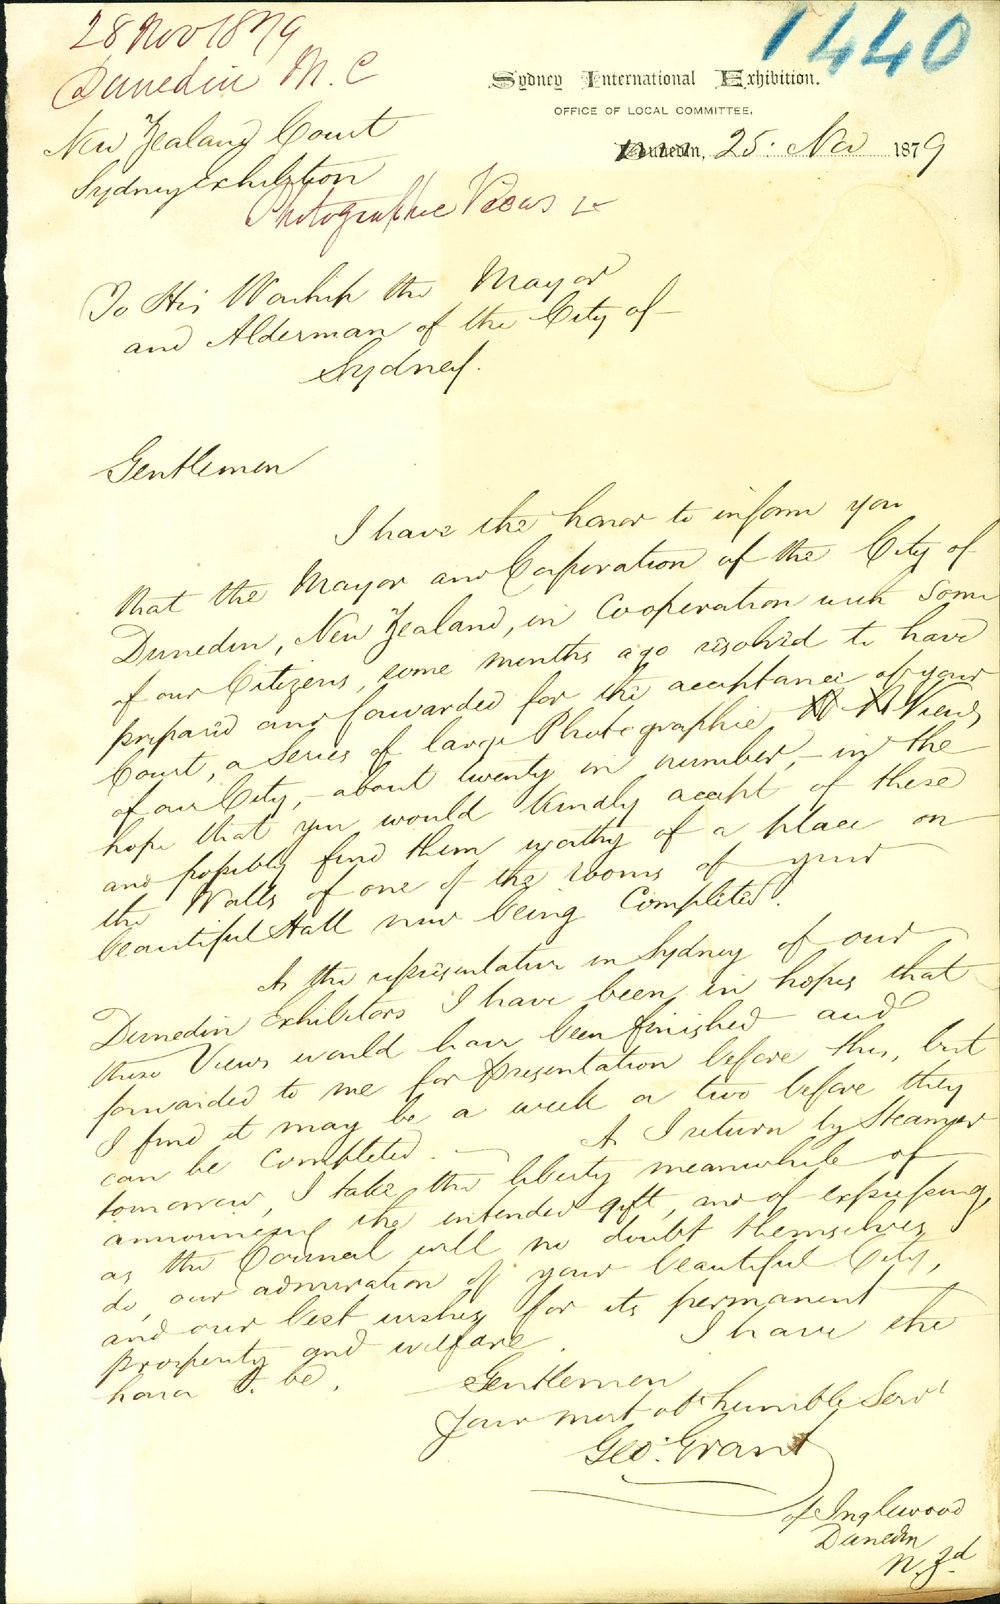 28 Nov 1879
Dunedin M. C
1440
Sydney International Exhibition.
OFFICE OF LOCAL COMMITTEE,
Dunedin, 25: Nov 1879
New Zealand Court
Sydney Exhibition
Photographic Views
To His Worship the Mayor
and Alderman of the City of
Sydney.
Gentlemen
I have the honor to inform you
that the Mayor and Corporation of the City of
Dunedin, New Zealand, in Cooperation with some
of our Citizens, some months ago resolved to have
prepared and forwarded for the acceptance of your
Court, a Series of large Photographic Views
of our City, - about twenty in number, - in the
hope that you would kindly accept of these
and possibly find them worthy of a place on
the Walls of one of the rooms of your
beautiful Hall now being Completed.
As the representative in Sydney of our
Dunedin Exhibitors I have been in hopes that
these Views would have been finished and
forwarded to me for presentation before this, but
I find it may be a week or two before they
can be Completed. — As I return by Steamer
tomorrow, I take the liberty meanwhile of
announcing the intended gift, and of expressing,
as the Council will no doubt themselves
do, our admiration of your beautiful City,
and our best wishes for its permanent
prosperity and welfare. I have the
honor to be,
Gentlemen
Your most obt humble Servt
Geo: Grant
of Inglewood
Dunedin
N. Zd